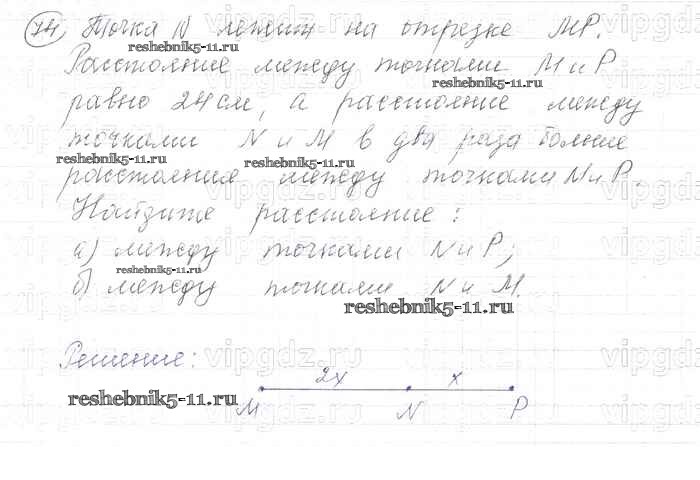 74. Точка N лежит на отрезке MP.
reshebnik5-11.ru
Расстояние между точками M и P
reshebnik5-11.ru
равно 24 см, а расстояние между
точками N и M в два раза больше
reshebnik5-11.ru reshebnik5-11.ru
расстояния между точками N и P.
Найдите расстояние:
а) между точками N и P;
reshebnik5-11.ru
б) между точками N и M.
reshebnik5-11.ru
Решение: vipgdz.ru
2x x
reshebnik5-11.ru
M N P